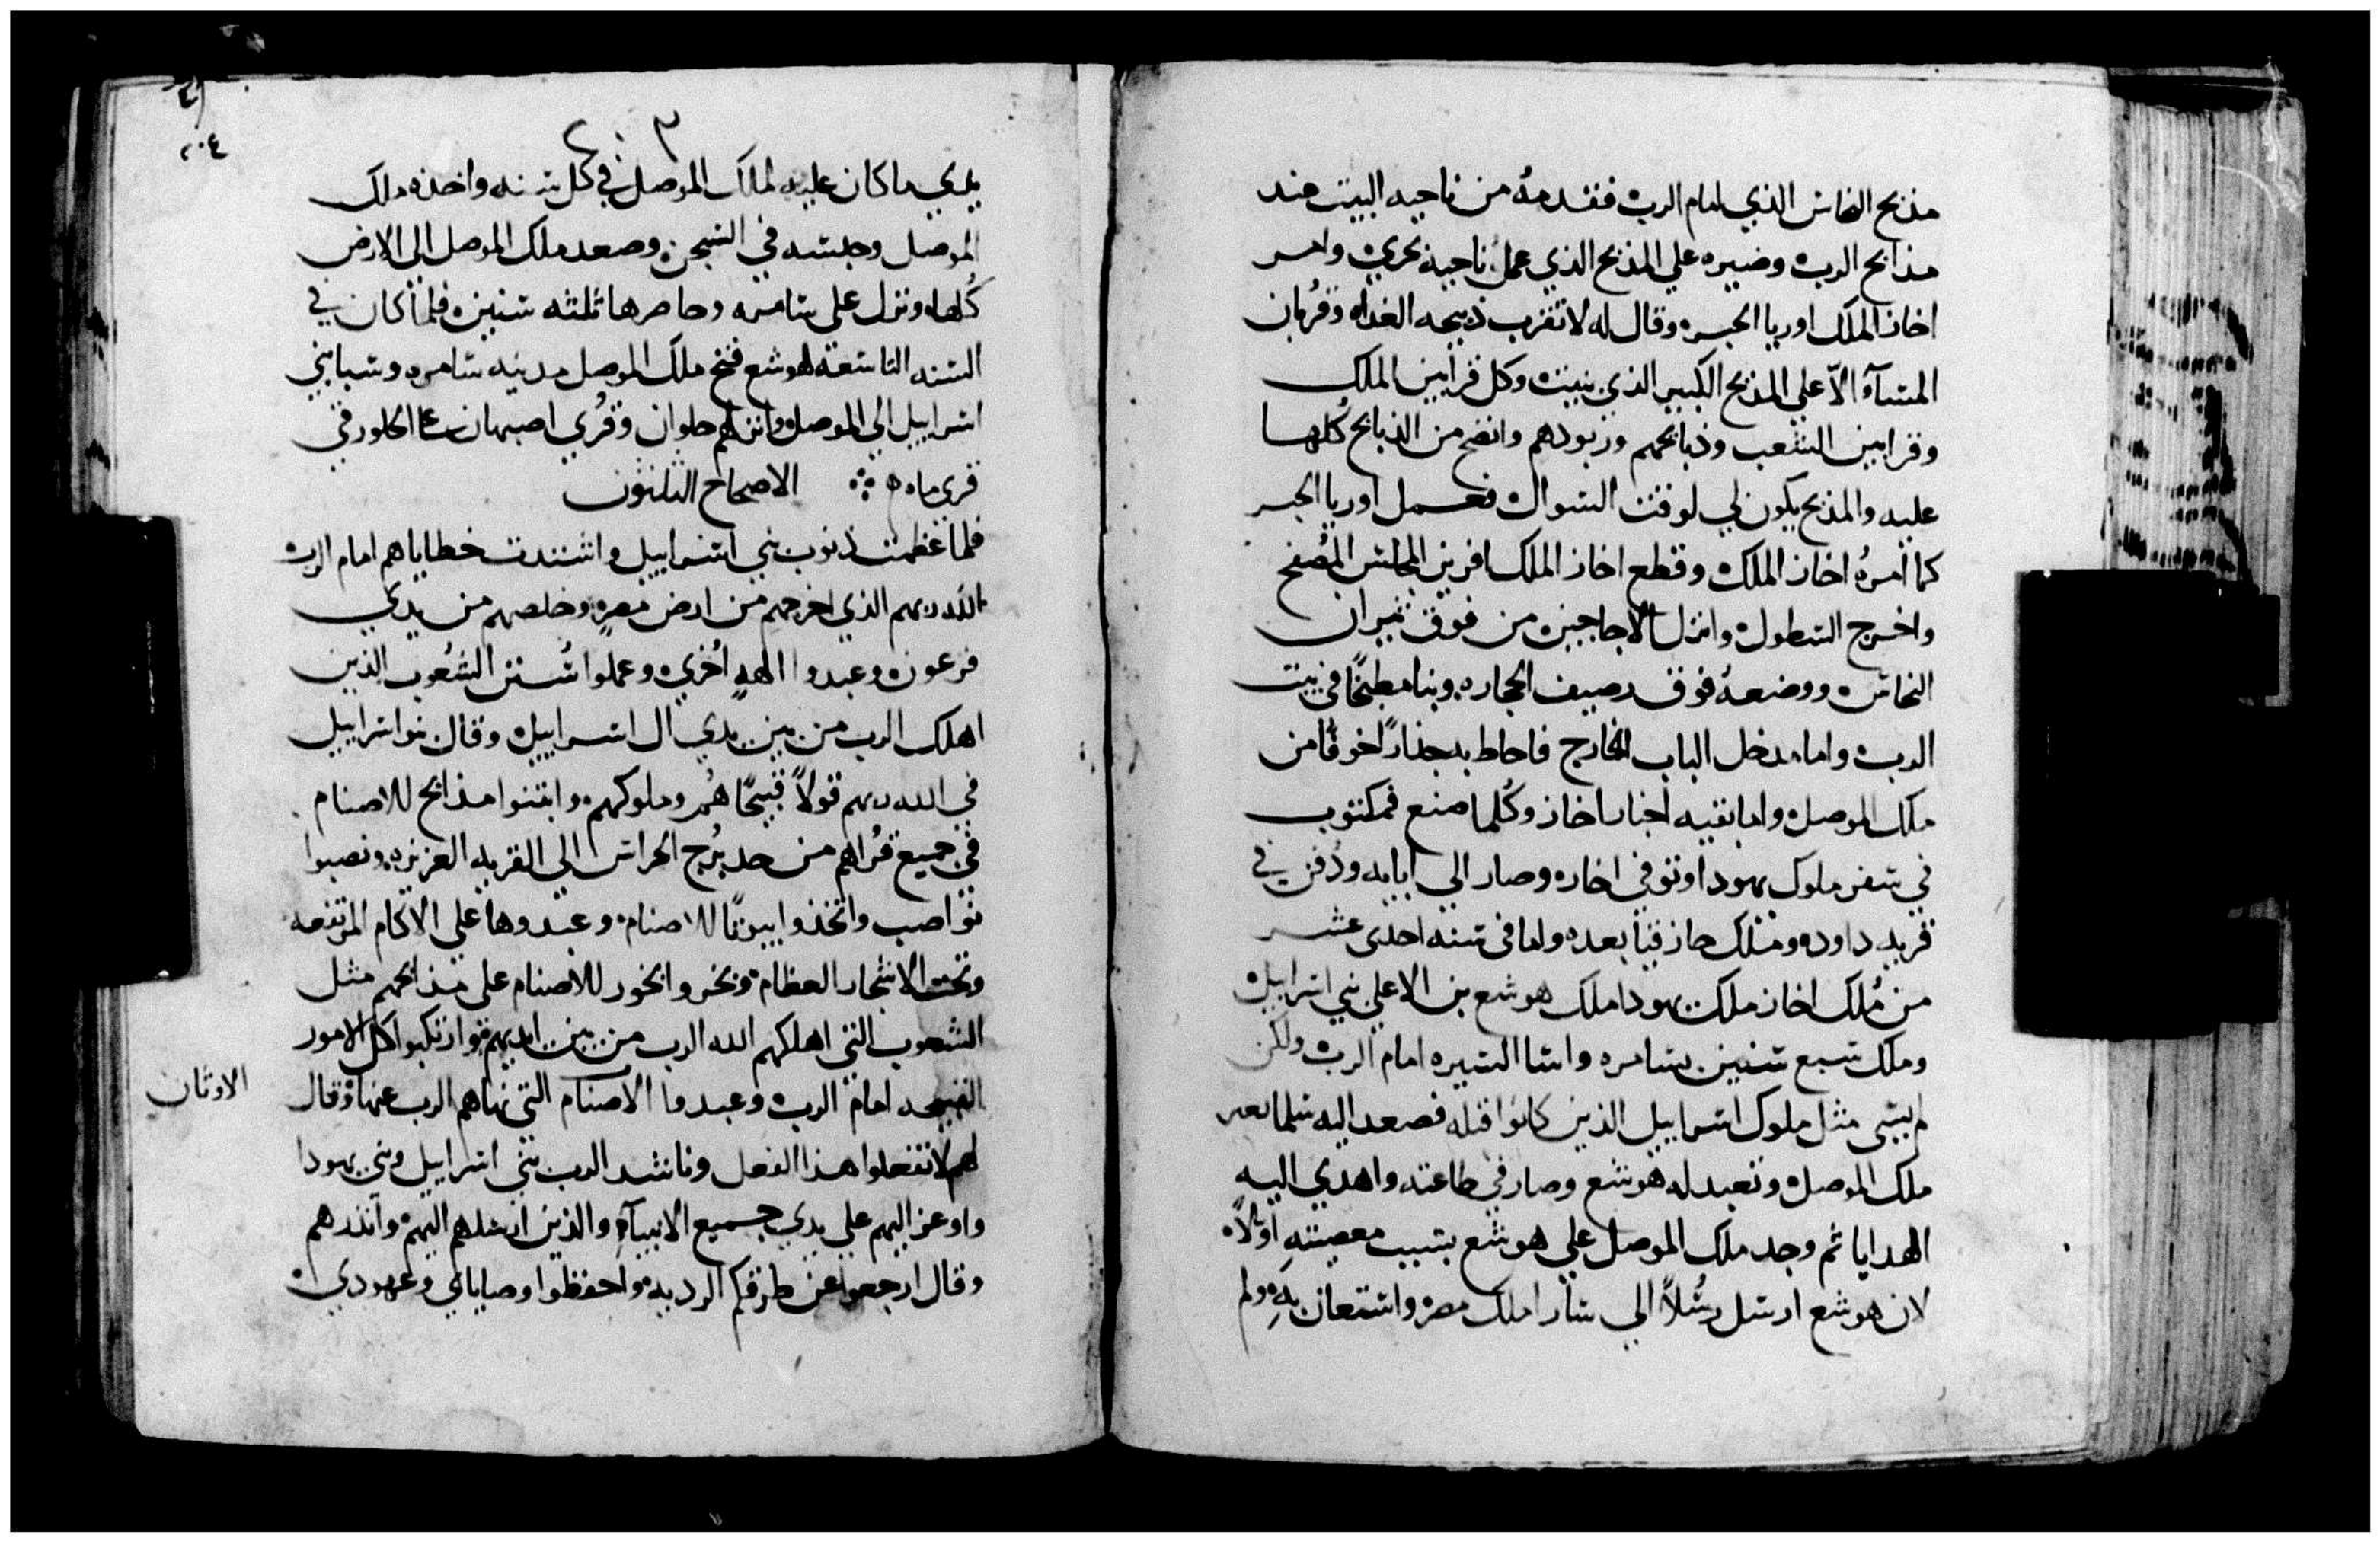 مذبح النحاس الذي امام الرب فقدمهُ من ناحيه البيت عند
مذابح الرب وصيره علي المذبح الذي عمل ناحيه بحري وامر
اخاز الملك اوريا الحبر وقال له لا تقرب ذبيحه الغداه وقُربان
المسآء الاّ علي المذبح الكبير الذي بنيت وكل قرابين الملك
وقرابين الشعب وذبائحهم وزبودهم وانضح من الذبايح كُلها
عليه والمذبح يكون لي لوقت السوال فعمل اوريا الحبر
كما امرهُ اخاز الملك وقطع اخاز الملك افريز المجالس المُصفح
واخرج السطول وانزل الاجاجين من فوق ثيران
النحاس ووضعهُ فوق رصيف الحجاره وبنا مطبخًا في بيت
الرب واما مدخل الباب الخارج فاحاط به جذارًا خوفًا من
ملك الموصل واما بقيه اخبار اخاز وكُلما صنع فمكتوب
في سفر ملوك يهودا وتوفي اخاز وصار الي ابايه ودُفن في
قريه داود وملك حازقيا بعده واما في سنه احدى عشر
من مُلك اخاز ملك يهودا ملك هوشع بن الا علي بني اسراييل
وملك تسع سنين بسامره واسا السيره امام الرب ولكن
لم يسي مثل ملوك اسراييل الذين كانوا قبله فصعد اليه شلمانعسر
ملك الموصل وتعبد له هوشع وصار في طاعته واهدي اليه
الهدايا ثم وجد ملك الموصل علي هوشع بسبب معصيته اولاً
لان هوشع ارسل رسُلاً الي سارا ملك مصر واستعان بهِ ولم
٢٠٣
٢٠٤
يهدي ما كان عليه لملك الموصل في كل سنه واخذه ملك
الموصل وحبسه في السجن وصعد ملك الموصل الي الارض
كُلها ونزل علي سامره وحاصرها ثلثه سنين فلما كان في
السنه التاسعه لهوشع فتح ملك الموصل مدينه سامره وسبا بني
اسراييل الي الموصل وانزلهم حلوان وقُري اصبهان الكلور في
قري ماه ؞ الاصحاح الثلثون
فلما عظمت ذنوب بني اسراييل واشتدت خطاياهم امام الرب
الله ربهم الذي اخرجهم من ارض مصر وخلصهم من يدي
فرعون وعبدوا الههٍ اُخري وعملوا سُنن الشعُوب الذين
اهلك الرب من بين يدي ال اسراييل وقال بنو اسراييل
في الله ربهم قولاً قبيحًا هُم وملوكهم وابتنوا مذابح للاصنام
في جميع قُراهم من حد بُرج الحراس الي القريه العزيزه ونصبوا
نواصب واتخذوا بيوتًا للاصنام وعبدوها علي الاكام المرتفعه
وتحت الاشجار العظام وبخروا بخور للاصنام علي مذابحهم مثل
الشعوب التي اهلكهم الله الرب من بين ايديهم وارتكبوا كل الامور
القبيحه امام الرب وعبدوا الاصنام التي نهاهم الرب عنها وقال
الاوثان
لهم لا تفعلوا هذا الفعل وناشد الرب بني اسراييل وبني يهودا
واوعز اليهم علي يدي جميع الانبيآءِ والذين ارسلهم اليهم وانذرهم
وقال ارجعوا عن طرقكم الرديه واحفظوا وصاياي وعهودي